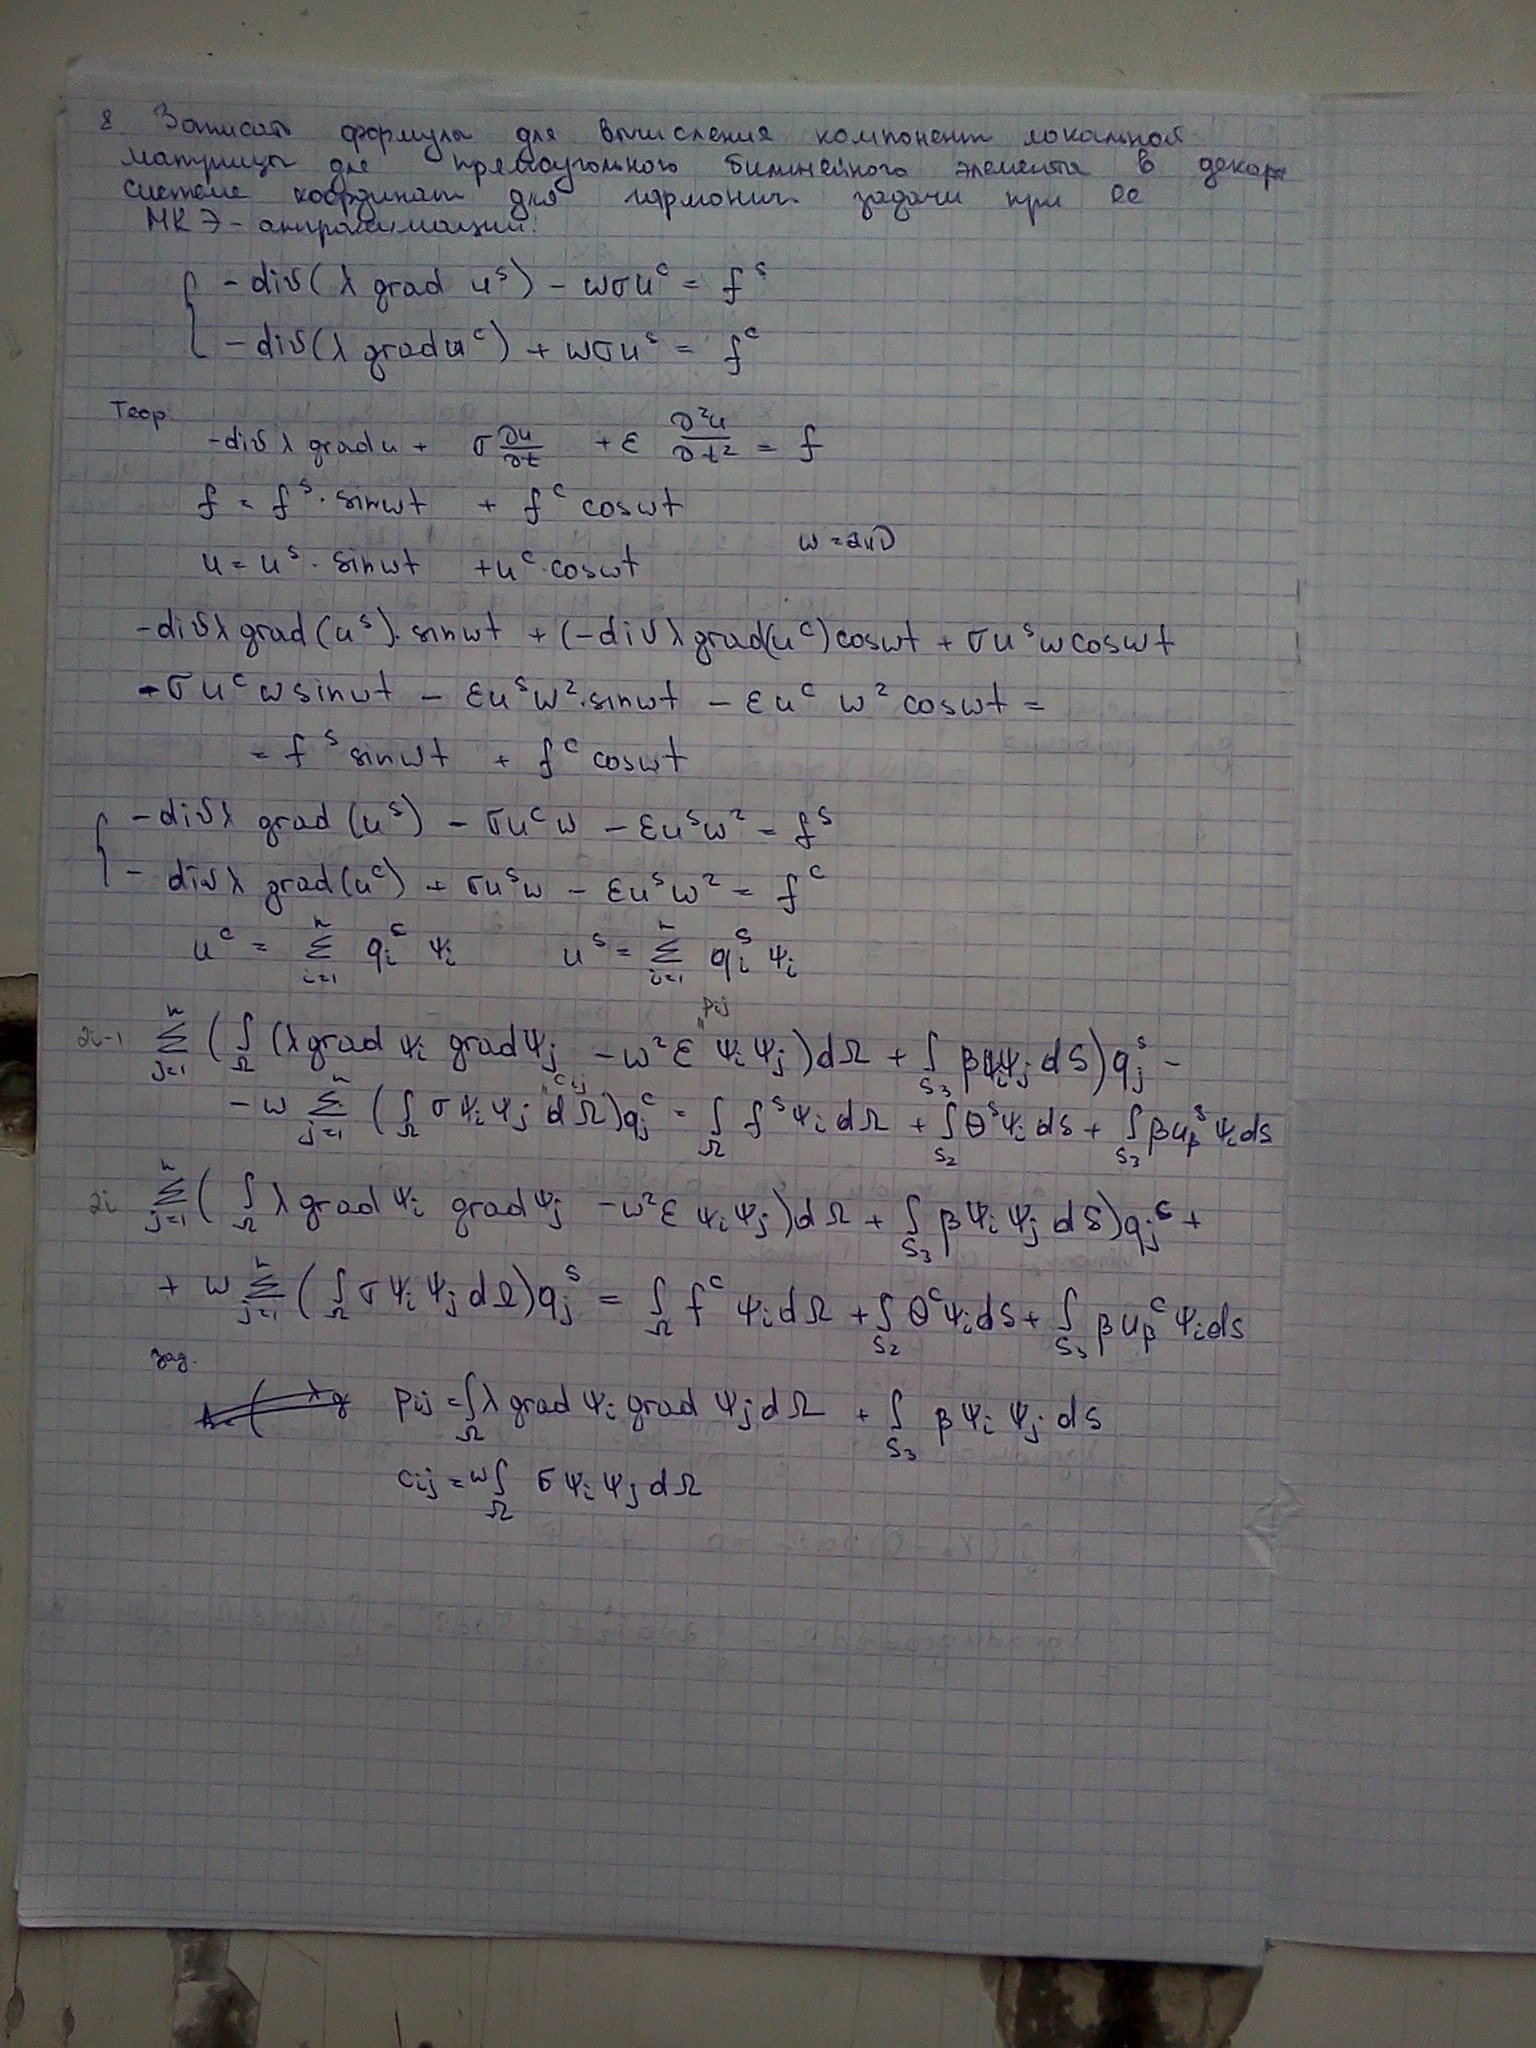 8. Записать формулы для вычисления компонент локальной
матрицы для прямоугольного билинейного элемента в декарт
системе координат для гармонич. задачи при ее
МКЭ-аппроксимации:
{ -div(λ grad u^s) - ωσu^c = f^s
-div(λ grad u^c) + ωσu^s = f^c
Теор.
-div λ grad u + σ ∂u/∂t + ε ∂²u/∂t² = f
f = f^s · sinωt + f^c cosωt
ω = 2πν
u = u^s · sinωt + u^c · cosωt
-div λ grad(u^s) · sinωt + (-div λ grad(u^c) cosωt + σu^s ω cosωt
- σu^c ω sinωt - εu^s ω² · sinωt - εu^c ω² cosωt =
= f^s sinωt + f^c cosωt
{ -div λ grad (u^s) - σu^c ω - εu^s ω² = f^s
- div λ grad(u^c) + σu^s ω - εu^s ω² = f^c
u^c = Σ_{i=1}^n q_i^c ψ_i u^s = Σ_{i=1}^n q_i^s ψ_i
p_ij
2i-1 Σ_{j=1}^n (∫_Ω (λ grad ψ_i grad ψ_j - ω²ε ψ_i ψ_j) dΩ + ∫_{S_3} β ψ_i ψ_j dS) q_j^s -
c_ij
- ω Σ_{j=1}^n (∫_Ω σ ψ_i ψ_j dΩ) q_j^c = ∫_Ω f^s ψ_i dΩ + ∫_{S_2} θ^s ψ_i ds + ∫_{S_3} β u_β^s ψ_i ds
2i Σ_{j=1}^n ( ∫_Ω λ grad ψ_i grad ψ_j - ω²ε ψ_i ψ_j) dΩ + ∫_{S_3} β ψ_i ψ_j dS) q_j^c +
+ ω Σ_{j=1}^n (∫_Ω σ ψ_i ψ_j dΩ) q_j^s = ∫_Ω f^c ψ_i dΩ + ∫_{S_2} θ^c ψ_i ds + ∫_{S_3} β u_β^c ψ_i ds
зад.
p_ij = ∫_Ω λ grad ψ_i grad ψ_j dΩ + ∫_{S_3} β ψ_i ψ_j ds
c_ij = ω ∫_Ω σ ψ_i ψ_j dΩ